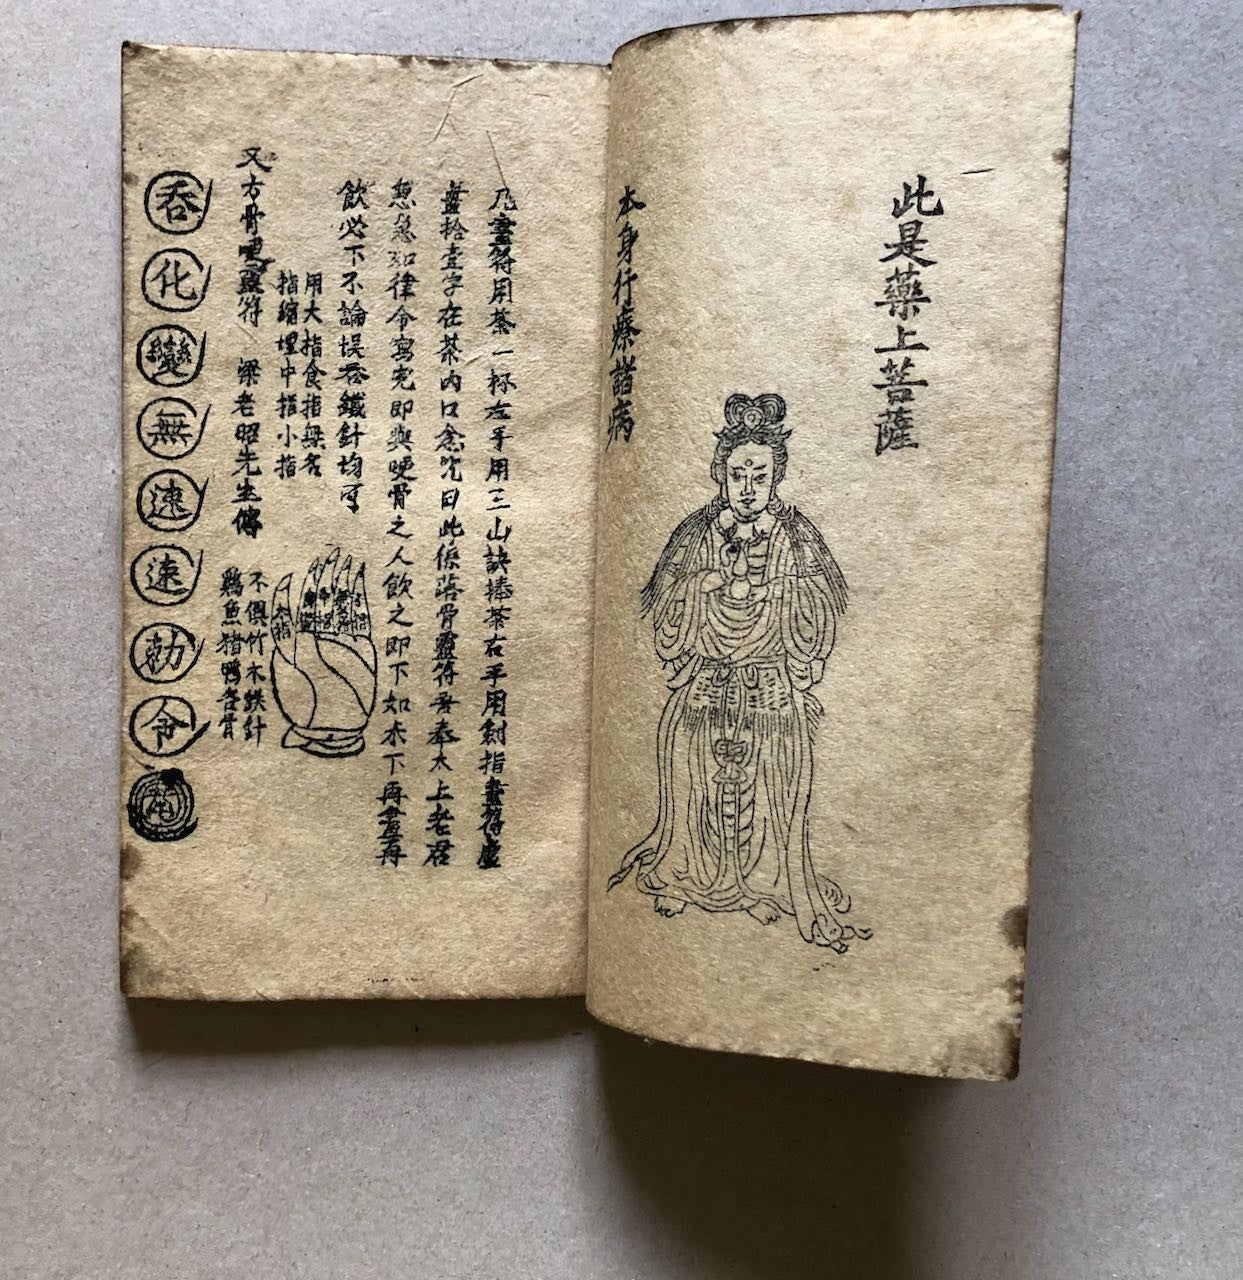 此是藥上菩薩
本身行療諸病
凡畫符用茶一杯左手用三山訣捧茶右手用劍指畫符虛
畫拾壹字在茶內口念咒曰此係落骨靈符吾奉太上老君
急急如律令寫完即與哽骨之人飲之即下如未下再畫再
飲必下不論誤吞鐵針均可
用大指食指無名
指縮埋中指小指
大指
又方骨哽靈符 梁老昭先生傳
不俱竹木鉄針
鷄魚猪鴨各骨
吞化變無速速勅令